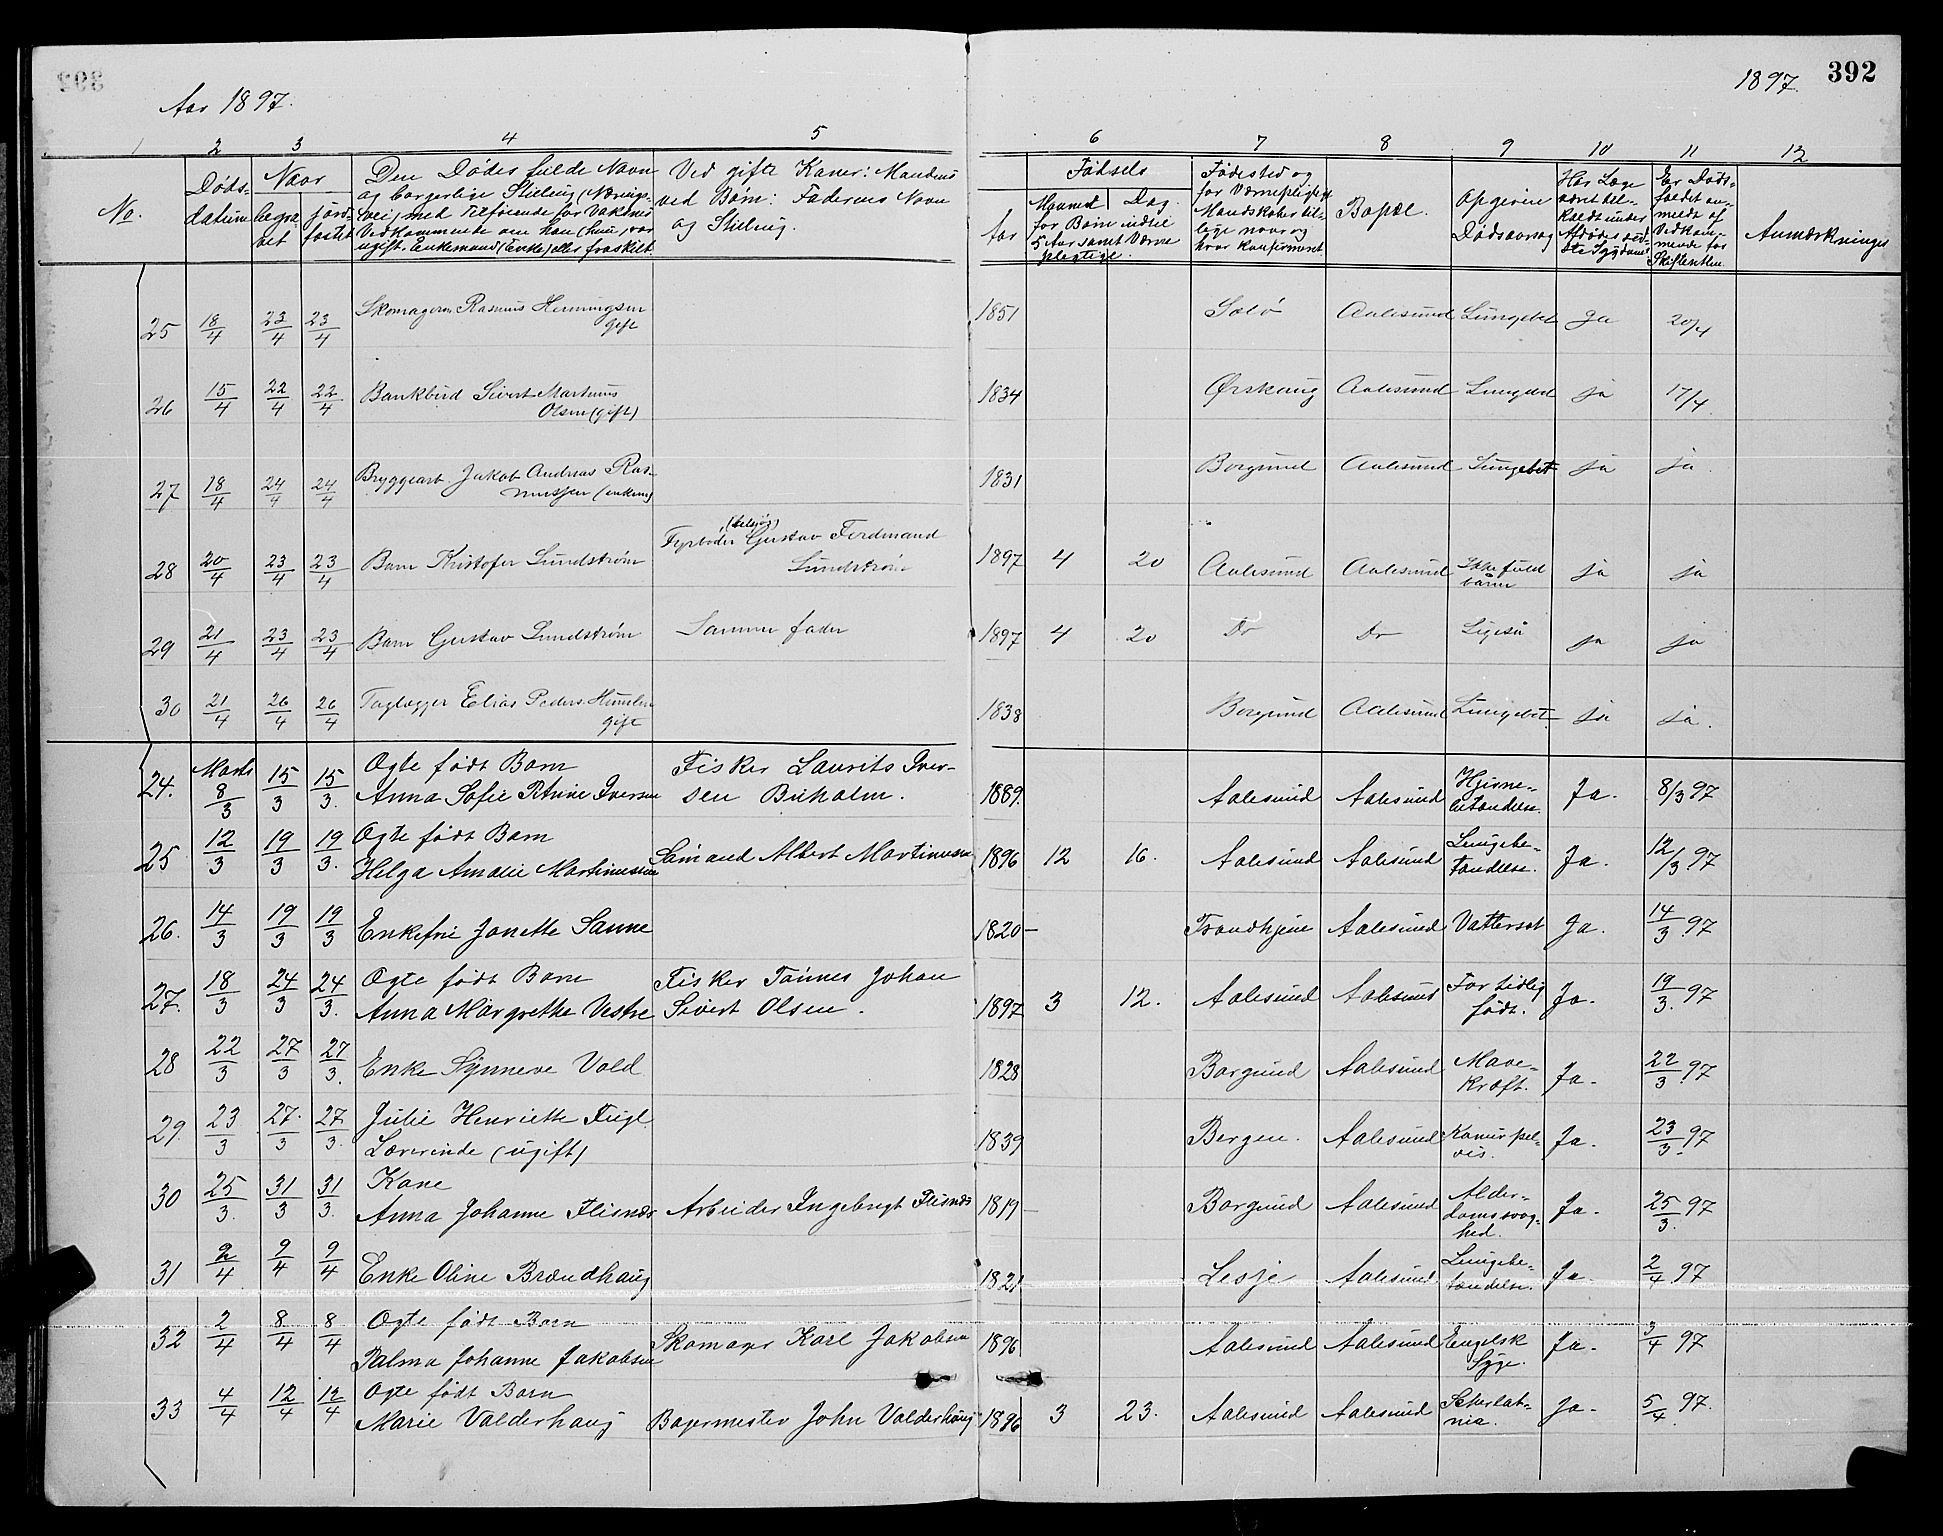 Aar 1897.
1897. 392
1 2 3 4 5 6 7 8 9 10 11 12
No.
Døds-
datum
Naar
begra-
vet
jord-
fæstet
Den Dødes fulde Navn
og borgerlige Stilling (Nærings-
vei, med Tilføiende for Voksnes
Vedkommende om han (hun) var
ugift, Enkemand (Enke) eller fraskilt
Ved gifte Koner: Mandens
ved Børn: Faderens Navn
og Stilling.
Fødsels
Aar
Maaned Dag
for Børn indtil
5 Aar samt Værne-
pligtige.
Fødested og
for Værnepligtige
Mandskaber til-
lige naar og
hvor konfirmeret
Bopæl.
Opgiven
Dødsaarsag
Har Læge
været til-
kaldt under
Afdødes sid-
ste Sygdom
Er Døds-
faldet an-
meldt af
Vedkom-
mende for
Skifteretten.
Anmærkninger
25 18/4 23/4 23/4 Skomagerm. Rasmus Henningsen
gift 1851 Aalesund Lungebet ja 20/4
26 15/4 22/4 22/4 Bankbud Sivert Martinus
Olsen (gift) 1834 Ørskoug Aalesund Lungebet ja 17/4.
27 18/4 24/4 24/4 Bryggearb Jakob Andreas Ras-
mussen (enkem) 1831 Borgund Aalesund Lungebet ja ja.
28 20/4 23/4 23/4 Barn Kristofer Lundstrøm Fyrbøder Gustav Ferdinand
Lundstrøm 1897 4 20 Aalesund Aalesund Ikke fuld
baaren ja ja
29 21/4 23/4 23/4 Barn Gustav Lundstrøm Samme fader 1897 4 20 Do Do Ligeså ja ja
30 21/4 26/4 26/4 Taglægger Elias Peders.
gift 1838 Borgund Aalesund Lungebet ja ja.
24. Marts
8/3 15/3 15/3. Ægte født Barn
Anna Sofie Petrine Iversen Fisker Laurits Iver-
sen Buholm. 1889. Aalesund Aalesund Hjerne-
betændelse. Ja. 8/3 97
25 12/3 19/3 19/3. Ægte født Barn
Helga Amalie Martinussen Sømand Albert Martinussen 1896 12 16. Aalesund Aalesund Lungebe-
tændelse. Ja. 12/3. 97
26. 14/3 19/3 19/3 Enkefru Janette Sanne 1820- Trondhjem Aalesund Vattersot Ja. 14/3 97
27. 18/3 24/3 24/3. Ægte født Barn
Anna Margrethe Vestre Fisker Tønnes Johan
Sivert Olsen. 1897 3 12. Aalesund Aalesund For tidlig
født. Ja. 19/3. 97
28 22/3 27/3 27/3. Enke Synneve Vold 1828 Borgund Aalesund Mave-
kræft. Ja. 22/3 97
29. 23/3 27/3 27/3. Julie Henriette Fugl
Lærerinde (ugift) 1839 Bergen. Aalesund Ja. 23/3. 97
30 25/3. 31/3 31/3. Kone
Anna Johanne Flisnæs Arbeider Ingebrigt Flisnæs 1819- Borgund Aalesund Alder-
domssvag-
hed. Ja. 25/3. 97
31 2/4 9/4 9/4 Enke Oline Brændhaug 1821 Lesje Aalesund Lungebe-
tændelse. Ja. 2/4 97
32 2/4 8/4 8/4 Ægte født Barn
Palma Johanne Jakobsen Skomager Karl Jakobsen 1896 Aalesund Aalesund Engelsk
Syge. Ja. 3/4 97
33 4/4 12/4 12/4 Ægte født Barn
Marie Valderhaug Bagermester John Valderhaug 1896 3 23. Aalesund Aalesund Skarlat-
nia. Ja. 5/4 97.